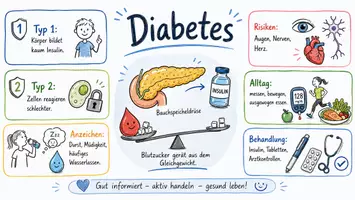 Diabetes
1
Typ 1:
Körper bildet
kaum Insulin.
2
Typ 2:
Zellen reagieren
schlechter.
Anzeichen:
Durst, Müdigkeit,
häufiges
Wasserlassen.
ZZZ
INSULIN
Bauchspeicheldrüse
Blutzucker gerät aus dem
Gleichgewicht.
Risiken:
Augen, Nerven,
Herz.
Alltag:
messen, bewegen,
ausgewogen essen.
128
Behandlung:
Insulin, Tabletten,
Arztkontrollen.
Gut informiert – aktiv handeln – gesund leben!